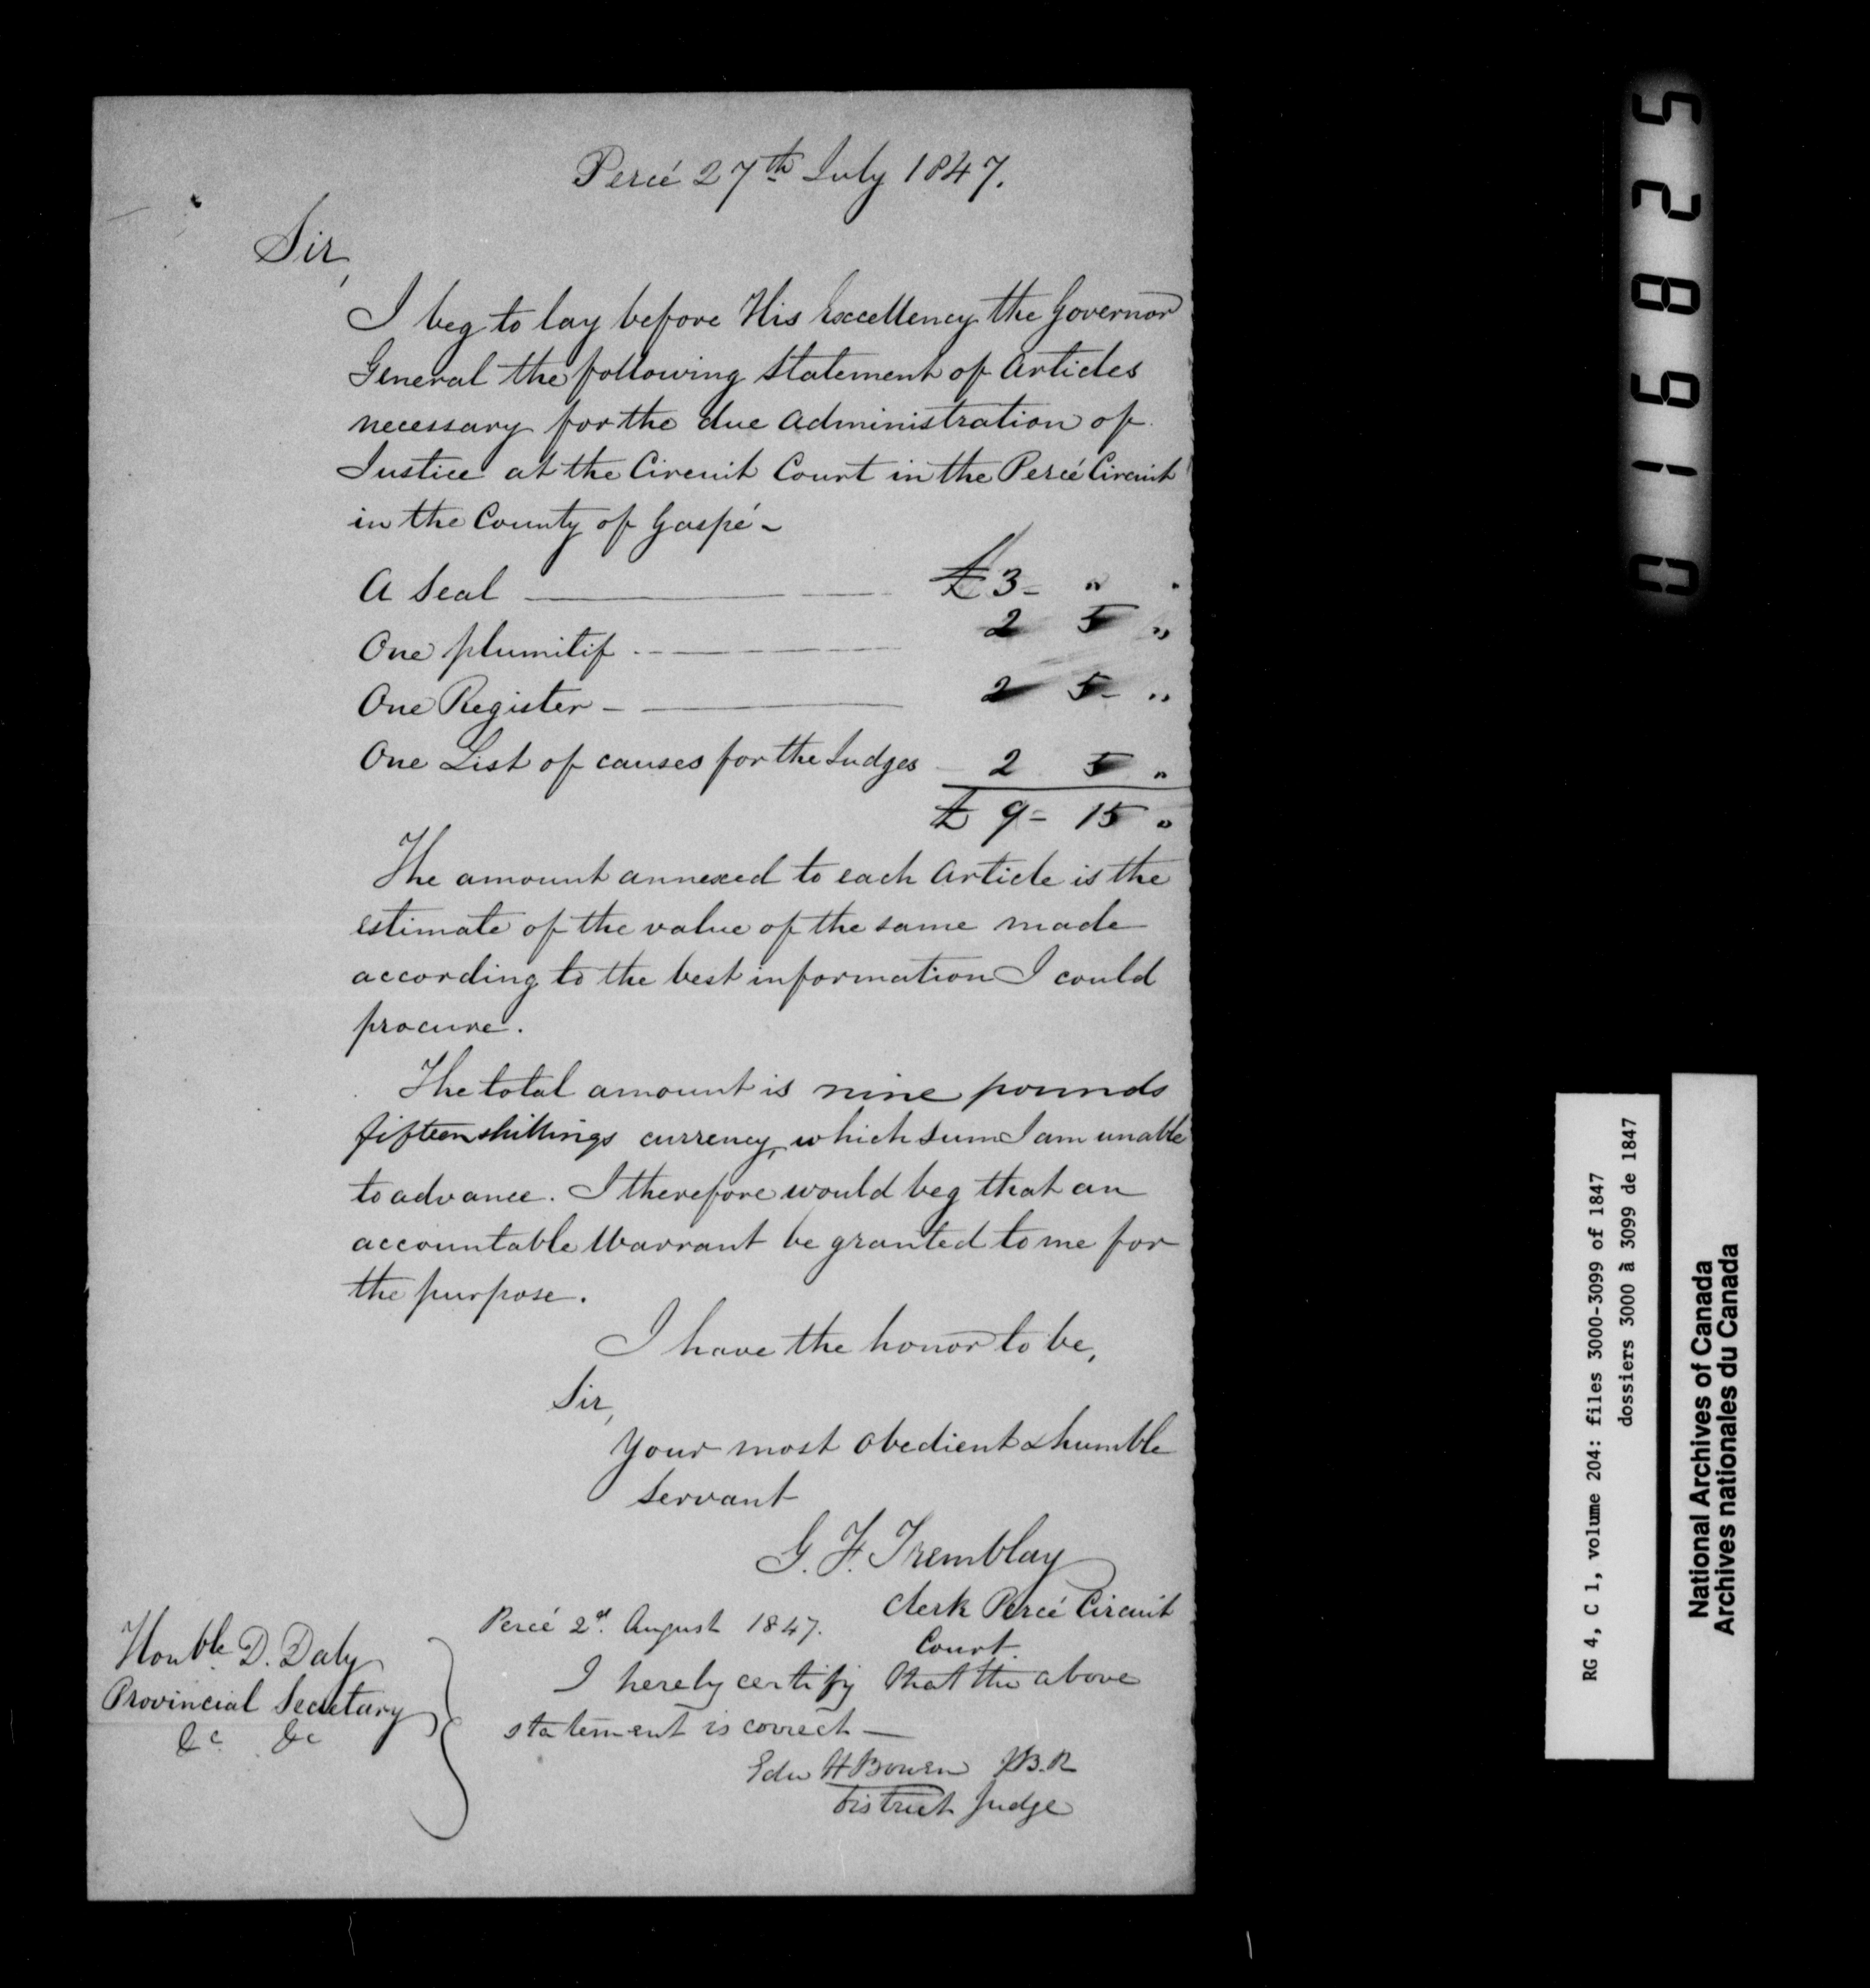 Percé 27th July 1847.
Sir,
I beg to lay before His Excellency the Governor
General the following Statement of Articles
necessary for the due Administration of
Justice at the Circuit Court in the Percé Circuit
in the County of Gaspé -
A Seal £3 - " "
One plumitif 2 5 "
One Register - 2 5 - "
One List of causes for the Judges 2 5 "
£ 9 = 15 "
The amount annexed to each Article is the
estimate of the value of the same made
according to the best information I could
procure.
The total amount is nine pounds
fifteen shillings currency, which sum I am unable
to advance. I therefore would beg that an
accountable Warrant be granted to me for
the purpose.
I have the honor to be,
Sir,
Your most obedient & humble
Servant
G. F. Tremblay
Clerk Percé Circuit
Court.
Honble D. Daly
Provincial Secretary
&c &c
Percé 2d. August 1847.
I hereby certify that the above
statement is correct —
Edw H Bowen J.B.R
District Judge
016825
RG 4, C 1, volume 204: files 3000-3099 of 1847
dossiers 3000 à 3099 de 1847
National Archives of Canada
Archives nationales du Canada